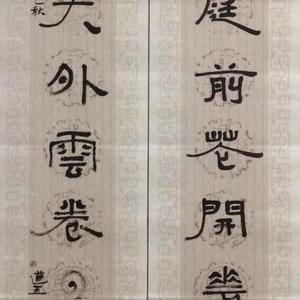 庭前花開華
天外雲卷云
秋